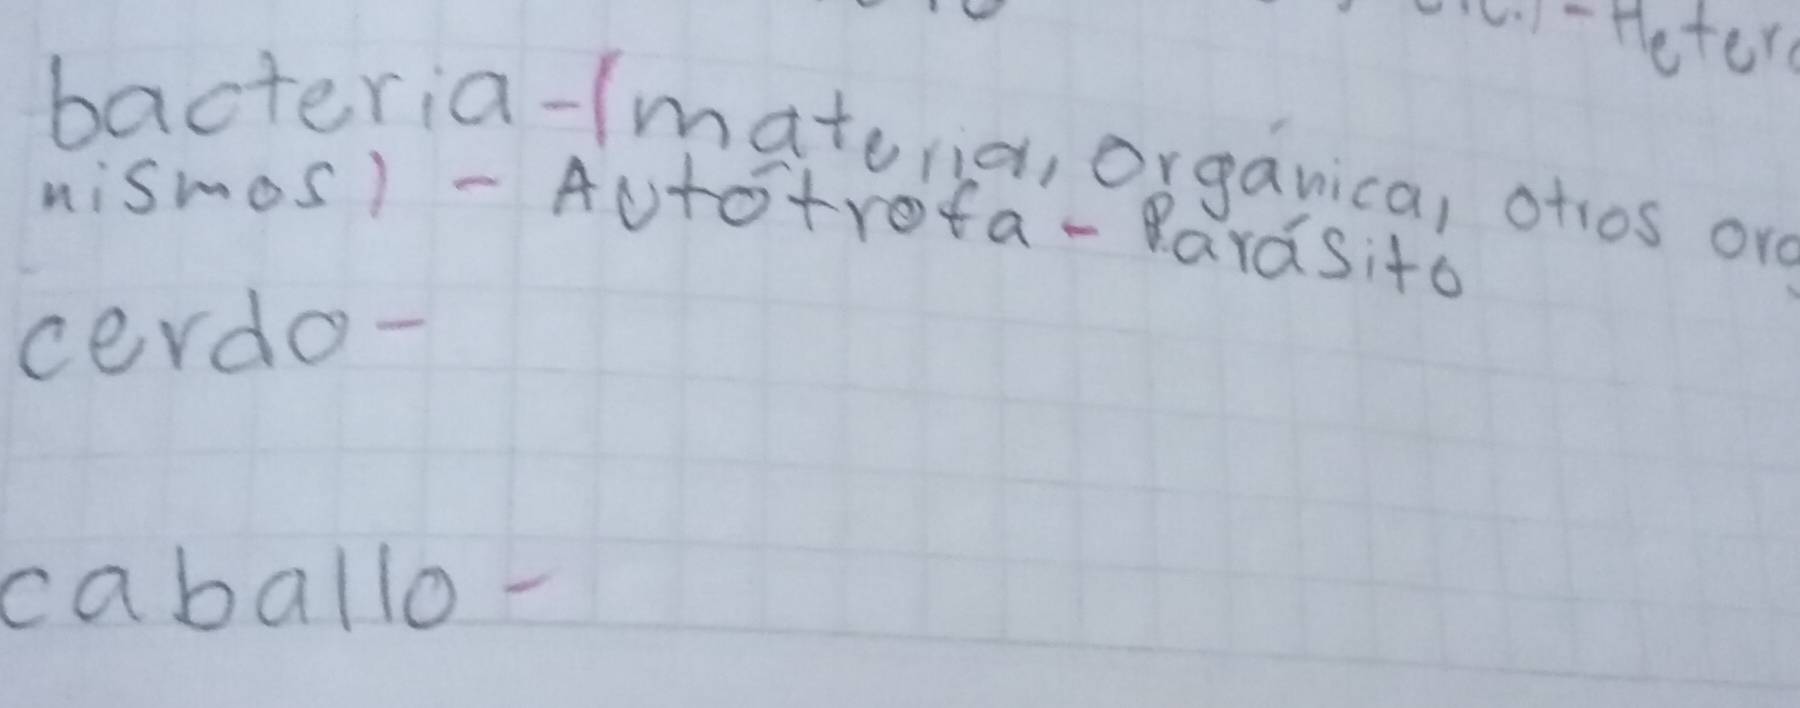 - Heter
bacteria - (materia, orgánica, otros org
nismos) - Autótrofa - Parásito
cerdo -
caballo -